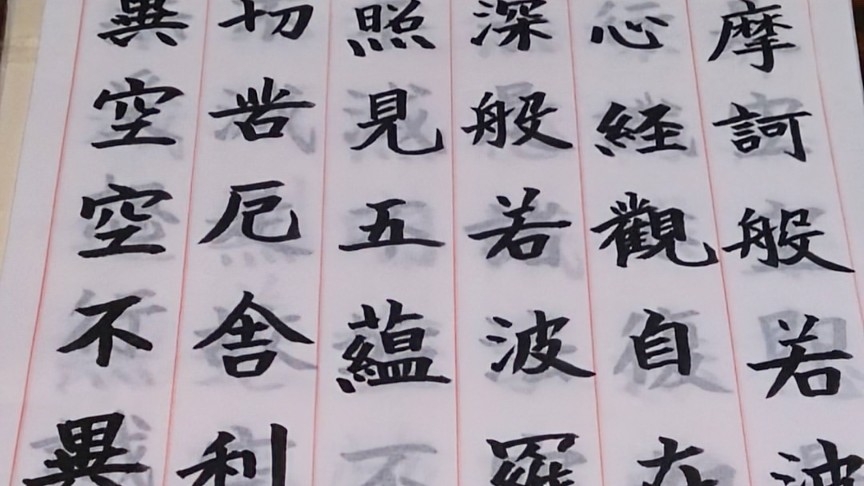 摩訶般若波
心経觀自在
深般若波羅
照見五蘊
切苦厄舎利
異空空不異